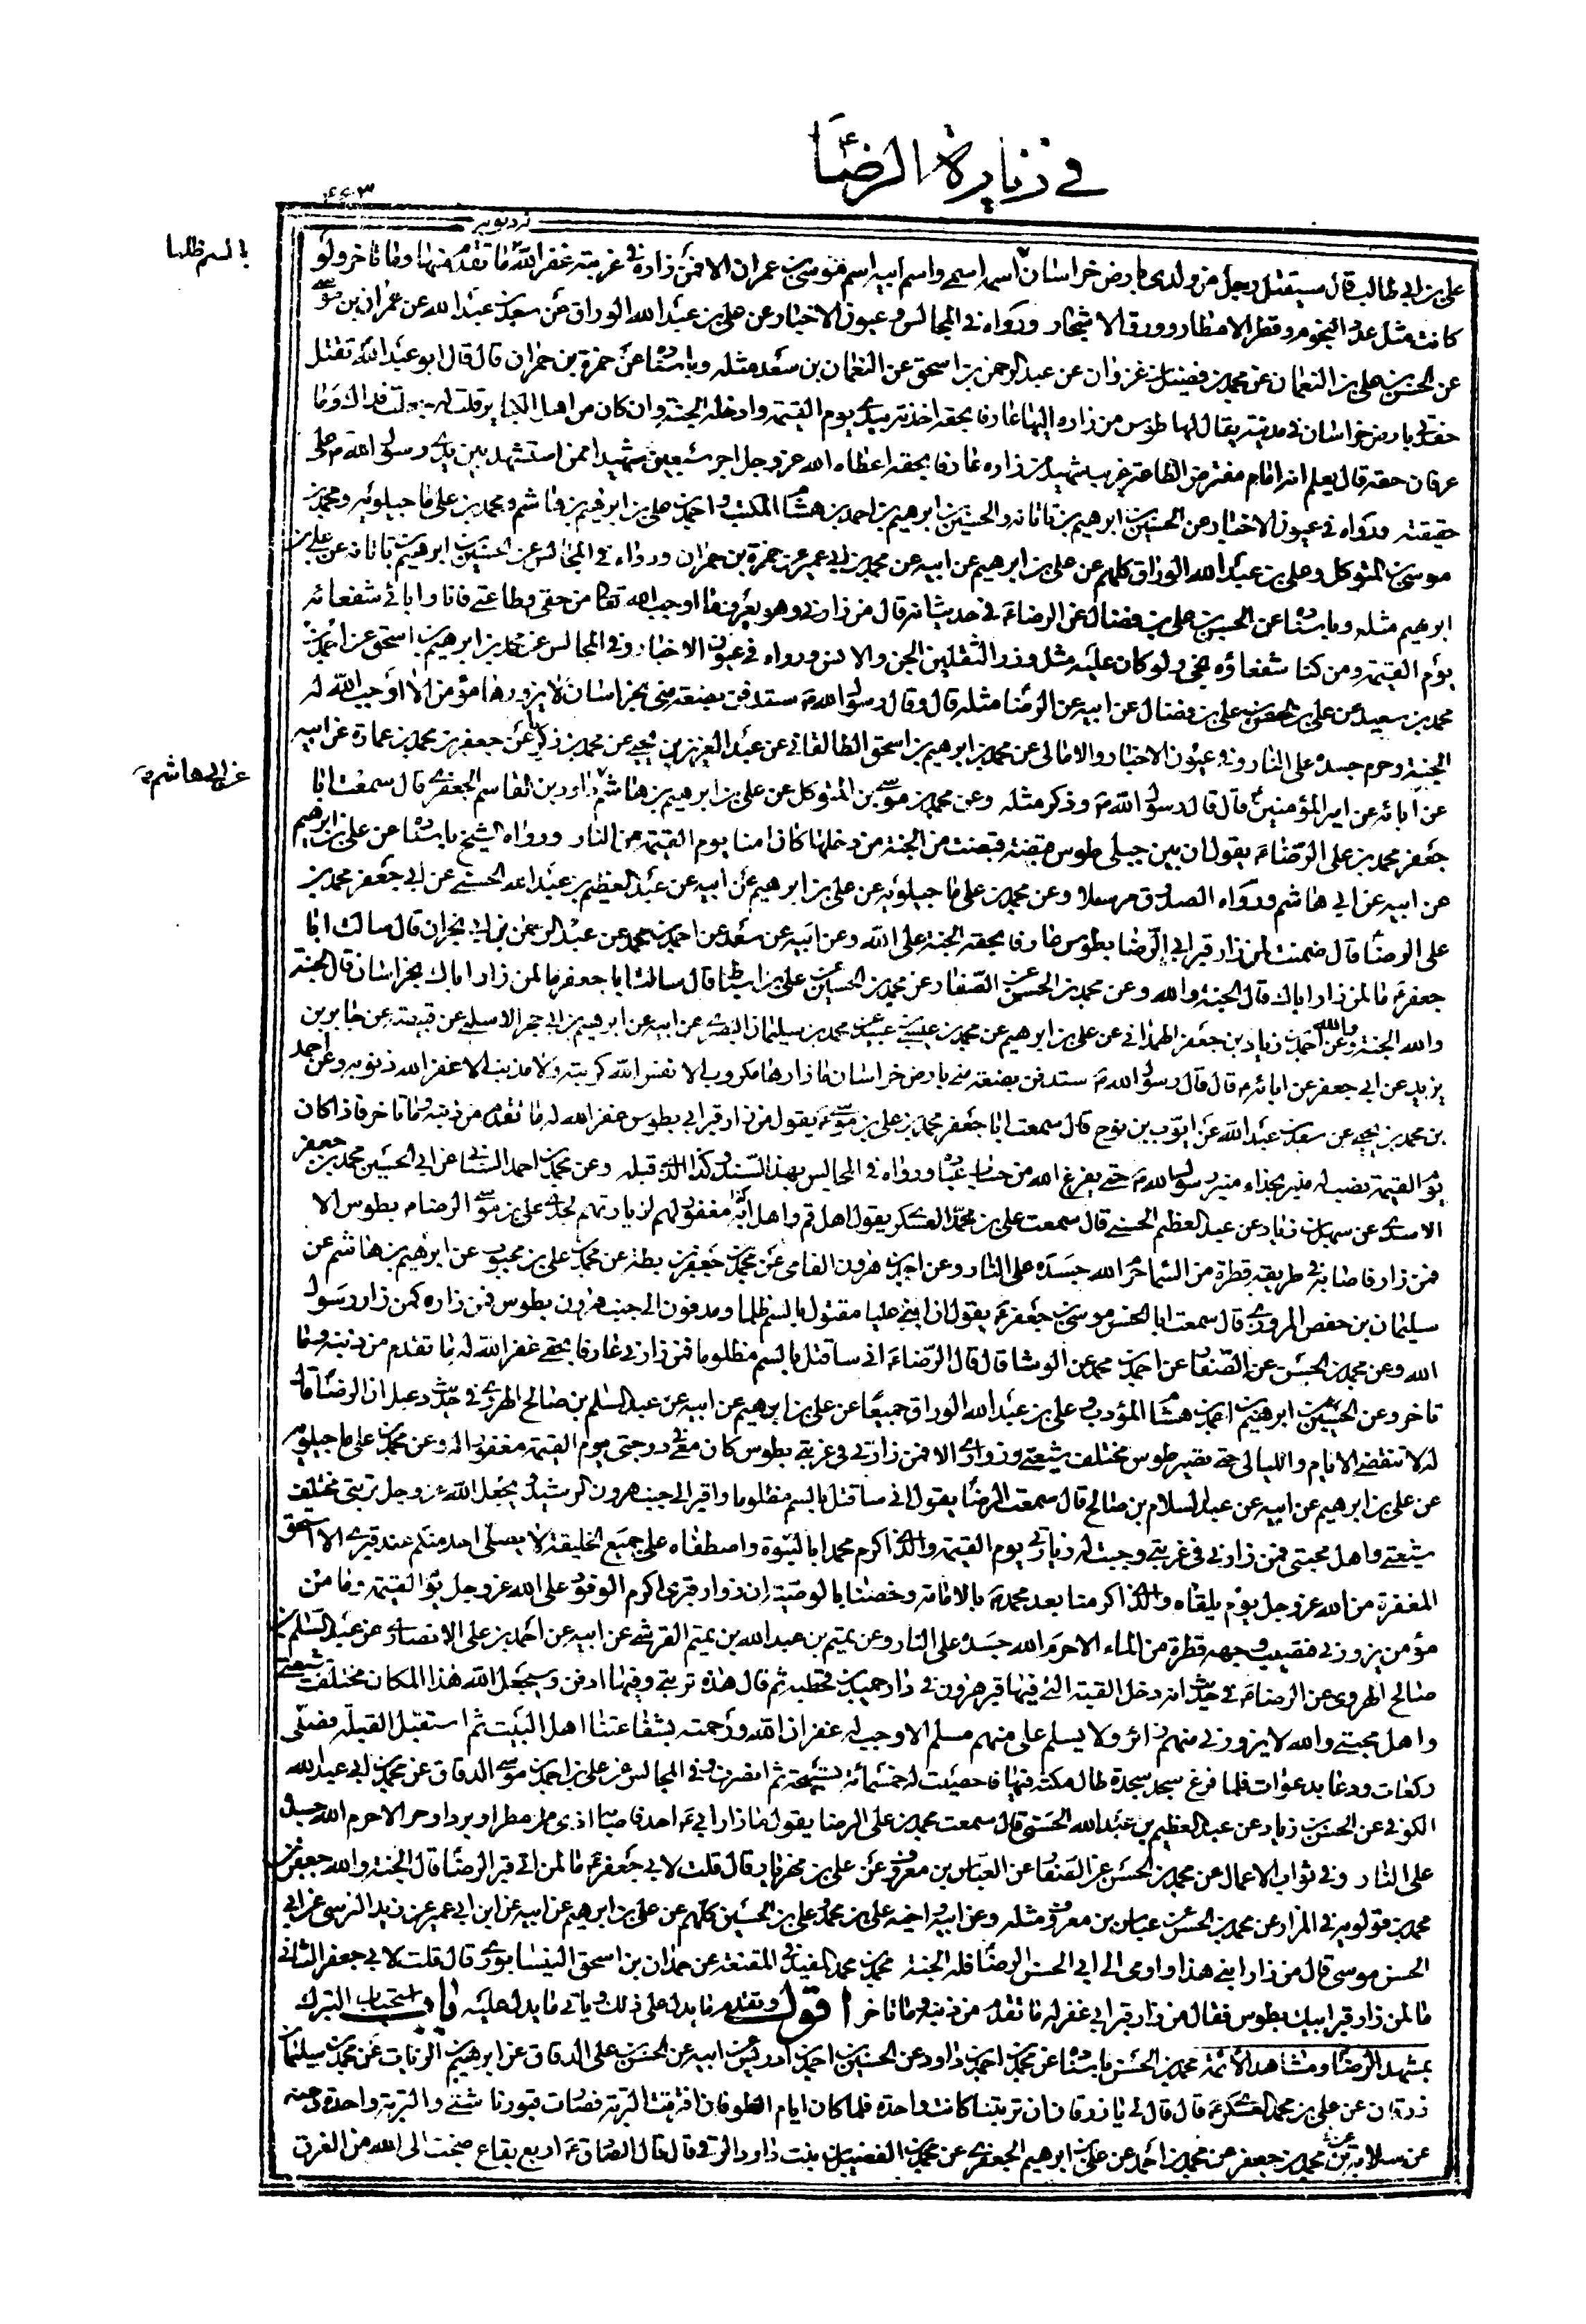 في زيارة الرضا ع
علي بن ابي طالب قال سيقتل رجل من ولدى بارض خراسان بالسم اسمه اسمي واسم ابيه اسم موسى بن عمران الا فمن زاره في غربته غفر الله ما تقدم منها وما تاخر ولو
بالسم ظلما
كانت مثل عدد النجوم وقطر الامطار وورق الاشجار ورواه في المجالس وعيون الاخبار عن علي بن عبد الله الوراق عن سعد بن عبد الله عن عمران بن موسى
عن الحسن بن علي بن النعمان عن محمد بن فضيل بن غزوان عن عبد الرحمن بن اسحق عن النعمان بن سعد مثله وباسناده عن حمزة بن حمران قال قال ابو عبد الله تقتل
حفدتي بارض خراسان في مدينة يقال لها طوس من زاره اليها عارفا بحقه اخذته بيدى يوم القيمة وادخلته الجنة وان كان من اهل الكباير قلت له جعلت فداك وما
عرفان حقه قال يعلم انه امام مفترض الطاعة غريب شهيد من زاره عارفا بحقه اعطاه الله عز وجل اجر سبعين شهيدا ممن استشهد بين يدى رسول الله ص على
حقيقته ورواه في عيون الاخبار عن الحسين بن ابراهيم بن ناتانه والحسين بن ابرهيم بن احمد بن هشام المكتب واحمد بن علي بن ابرهيم بن هاشم ومحمد بن علي ماجيلويه ومحمد بن
موسى بن المتوكل وعلي بن عبد الله الوراق كلهم عن علي بن ابرهيم عن ابيه عن محمد بن ابي عمير عن حمزة بن حمران ورواه في المجالس عن الحسين بن ابرهيم بن ناتانه عن علي بن
ابرهيم مثله وباسناده عن الحسن بن علي بن فضال عن الرضا ع في حديث انه قال من زارني وهو يعرف ما اوجب الله تعالى من حقي وطاعتي فانا وابائي شفعائه
يوم القيمة ومن كنا شفعاؤه نجى ولو كان عليه مثل وزر الثقلين الجن والانس ورواه في عيون الاخبار وفي المجالس عن محمد بن ابرهيم بن اسحق عن احمد بن
محمد بن سعيد عن علي بن الحسن بن علي بن فضال عن ابيه عن الرضا مثله قال وقال رسول الله ص ستدفن بضعة مني بخراسان لا يزورها مؤمن الا اوجب الله له
الجنة وحرم جسده على النار وفي عيون الاخبار والامالى عن محمد بن ابرهيم بن اسحق الطالقاني عن عبد العزيز بن يحيى عن محمد بن زكريا عن جعفر بن محمد بن عمارة عن ابيه
عن ابي هاشم
عن ابائه عن امير المؤمنين ع قال قال رسول الله ص وذكر مثله وعن محمد بن موسى بن المتوكل عن علي بن ابرهيم بن هاشم داود بن القاسم الجعفرى قال سمعت ابا
جعفر محمد بن علي الرضا ع يقول ان بين جبلى طوس قبضة قبضت من الجنة من دخلها كان امنا يوم القيمة من النار ورواه الشيخ باسناده عن علي بن ابرهيم
عن ابيه عن ابي هاشم ورواه الصدوق مرسلا وعن محمد بن علي ماجيلويه عن علي بن ابرهيم عن ابيه عن عبد العظيم بن عبد الله الحسنى عن ابي جعفر محمد بن
علي الرضا قال ضمنت لمن زار قبر ابي الرضا بطوس عارفا بحقه الجنة على الله وعن ابيه عن سعد عن احمد بن محمد عن عبد الرحمن بن ابي نجران قال سالت ابا
جعفر ع ما لمن زار اباك قال الجنة والله وعن محمد بن الحسن عن الصفار عن محمد بن الحسين عن علي بن اسباط قال سالت ابا جعفر ما لمن زار اباك بخراسان قال الجنة
والله الجنة والله وعن احمد بن زياد بن جعفر الهمداني عن علي بن ابرهيم عن محمد بن عيسى بن عبيد عن محمد بن سليمان البصرى عن ابيه عن ابرهيم بن ابي حجر الاسلمى عن قبيصة عن جابر بن
يزيد عن ابي جعفر عن ابائه ع قال قال رسول الله ص ستدفن بضعة مني بارض خراسان ما زارها مكروب الا نفس الله كربته ولا مذنب الا غفر الله ذنوبه وعن احمد
بن محمد بن يحيى عن سعد بن عبد الله عن ايوب بن نوح قال سمعت ابا جعفر محمد بن علي بن موسى ع يقول من زار قبر ابي بطوس غفر الله له ما تقدم من ذنبه وما تاخر فاذا كان
يوم القيمة نصب له منبر بحذاء منبر رسول الله ص حتى يفرغ الله من حساب عباده ورواه في المجالس بهذا السند وكذا الذى قبله وعن محمد بن احمد السناني عن ابي الحسين محمد بن جعفر
الاسدى عن سهل بن زياد عن عبد العظيم الحسني قال سمعت علي بن محمد العسكرى يقول اهل قم واهل ابه مغفور لهم لزيارتهم لجدى علي بن موسى الرضا ع بطوس الا
فمن زاره فاصابه في طريقه قطرة من السماء حرم الله جسده على النار وعن احمد بن هرون الفامى عن محمد بن جعفر بن بطة عن محمد بن علي بن محبوب عن ابرهيم بن هاشم عن
سليمان بن حفص المروزى قال سمعت ابا الحسن موسى بن جعفر ع يقول ان ابني عليا مقتول بالسم ظلما ومدفون الى جنب هرون بطوس فمن زاره كمن زار رسول
الله وعن محمد بن الحسن عن الصفار عن احمد بن محمد عن الوشا قال قال الرضا ع اني ساقتل بالسم مظلوما فمن زارني عارفا بحقى غفر الله له ما تقدم من ذنبه وما
تاخر وعن الحسين بن ابرهيم بن احمد بن هشام المؤدب وعلي بن عبد الله الوراق جميعا عن علي بن ابرهيم عن ابيه عن عبد السلم بن صالح الهروى في حديث دعبل ان الرضا قال
له لا تنقضي الايام والليالى حتى تصير طوس مختلف شيعتى وزوارى الا فمن زارني في غربتى بطوس كان معى في درجتى يوم القيمة مغفورا له وعن محمد بن علي ماجيلويه
عن علي بن ابرهيم عن ابيه عن عبد السلام بن صالح قال سمعت الرضا يقول اني ساقتل بالسم مظلوما واقبر الى جنب هرون الرشيد ويجعل الله عز وجل تربتى مختلف
شيعتى واهل محبتى فمن زارني في غربتى وجبت له زيارتى يوم القيمة والذى اكرم محمدا بالنبوة واصطفاه على جميع الخليقة لا يصلى احد منكم عند قبرى الا استحق
المغفرة من الله عز وجل يوم يلقاه والذى اكرمنا بعد محمد ص بالامامة وخصنا بالوصية ان زوار قبرى اكرم الوفود على الله عز وجل يوم القيمة وما من
مؤمن يزورني فتصيب وجهه قطرة من الماء الا حرم الله جسده على النار وعن تميم بن عبد الله بن تميم القرشى عن ابيه عن احمد بن علي الانصارى عن عبد السلم بن
صالح الهروى عن الرضا ع في حديث انه دخل القبة التي فيها قبر هرون في دار حميد بن قحطبه ثم قال هذه تربتى وفيها ادفن وسيجعل الله هذا المكان مختلف شيعتى
واهل محبتى والله لا يزورني منهم زائر ولا يسلم على منهم مسلم الا وجب له غفران الله ورحمته بشفاعتنا اهل البيت ثم استقبل القبلة فصلى
ركعات ودعا بدعوات فلما فرغ سجد سجدة طال مكثه فيها فاحصيت له خمسمائة تسبيحة ثم انصرف وفي المجالس عن علي بن احمد بن موسى الدقاق عن محمد بن ابي عبد الله
الكوفي عن الحسن بن زياد عن عبد العظيم بن عبد الله الحسنى قال سمعت محمد بن علي الرضا يقول ما زار ابي ع احد فاصابه اذى من مطر او برد او حر الا حرم الله جسده
على النار وفي ثواب الاعمال عن محمد بن الحسن عن الصفار عن العباس بن معروف عن علي بن مهزيار قال قلت لابي جعفر ع ما لمن اتى قبر الرضا قال الجنة والله جعفر بن
محمد بن قولويه في المزار عن محمد بن الحسن عن عباس بن معروف مثله وعن ابيه واخيه علي بن محمد وعلي بن الحسين كلهم عن علي بن ابرهيم عن ابيه عن ابن ابي عمير عن زيد النرسى عن ابي
الحسن موسى قال من زار ابني هذا واومى الى ابي الحسن الرضا فله الجنة محمد بن محمد المفيد في المقنعة عن حمدان بن اسحق النيسابورى قال قلت لابي جعفر الثاني
ما لمن زار قبر ابيك بطوس فقال من زار قبر ابي غفر له ما تقدم من ذنبه وما تاخر اقول وتقدم ما يدل على ذلك وياتي ما يدل عليه باب استحباب التبرك
بمشهد الرضا ومشاهد الائمة محمد بن الحسن باسناده عن محمد بن احمد بن داود عن الحسين بن احمد بن ادريس عن ابيه عن الحسن بن علي الدقاق عن ابرهيم بن الزيات عن محمد بن سليمان
زرقان عن علي بن محمد العسكرى ع قال قال لي يا زرقان ان تربتنا كانت واحدة فلما كان ايام الطوفان افترقت التربة فصارت قبورنا شتى والتربة واحدة وعنه
عن سلامة بن محمد عن محمد بن جعفر عن محمد بن احمد عن علي بن ابرهيم الجعفرى عن محمد بن الفضيل بن بنت داود الرقى قال قال الصادق ع اربع بقاع ضجت الى الله من الغرق